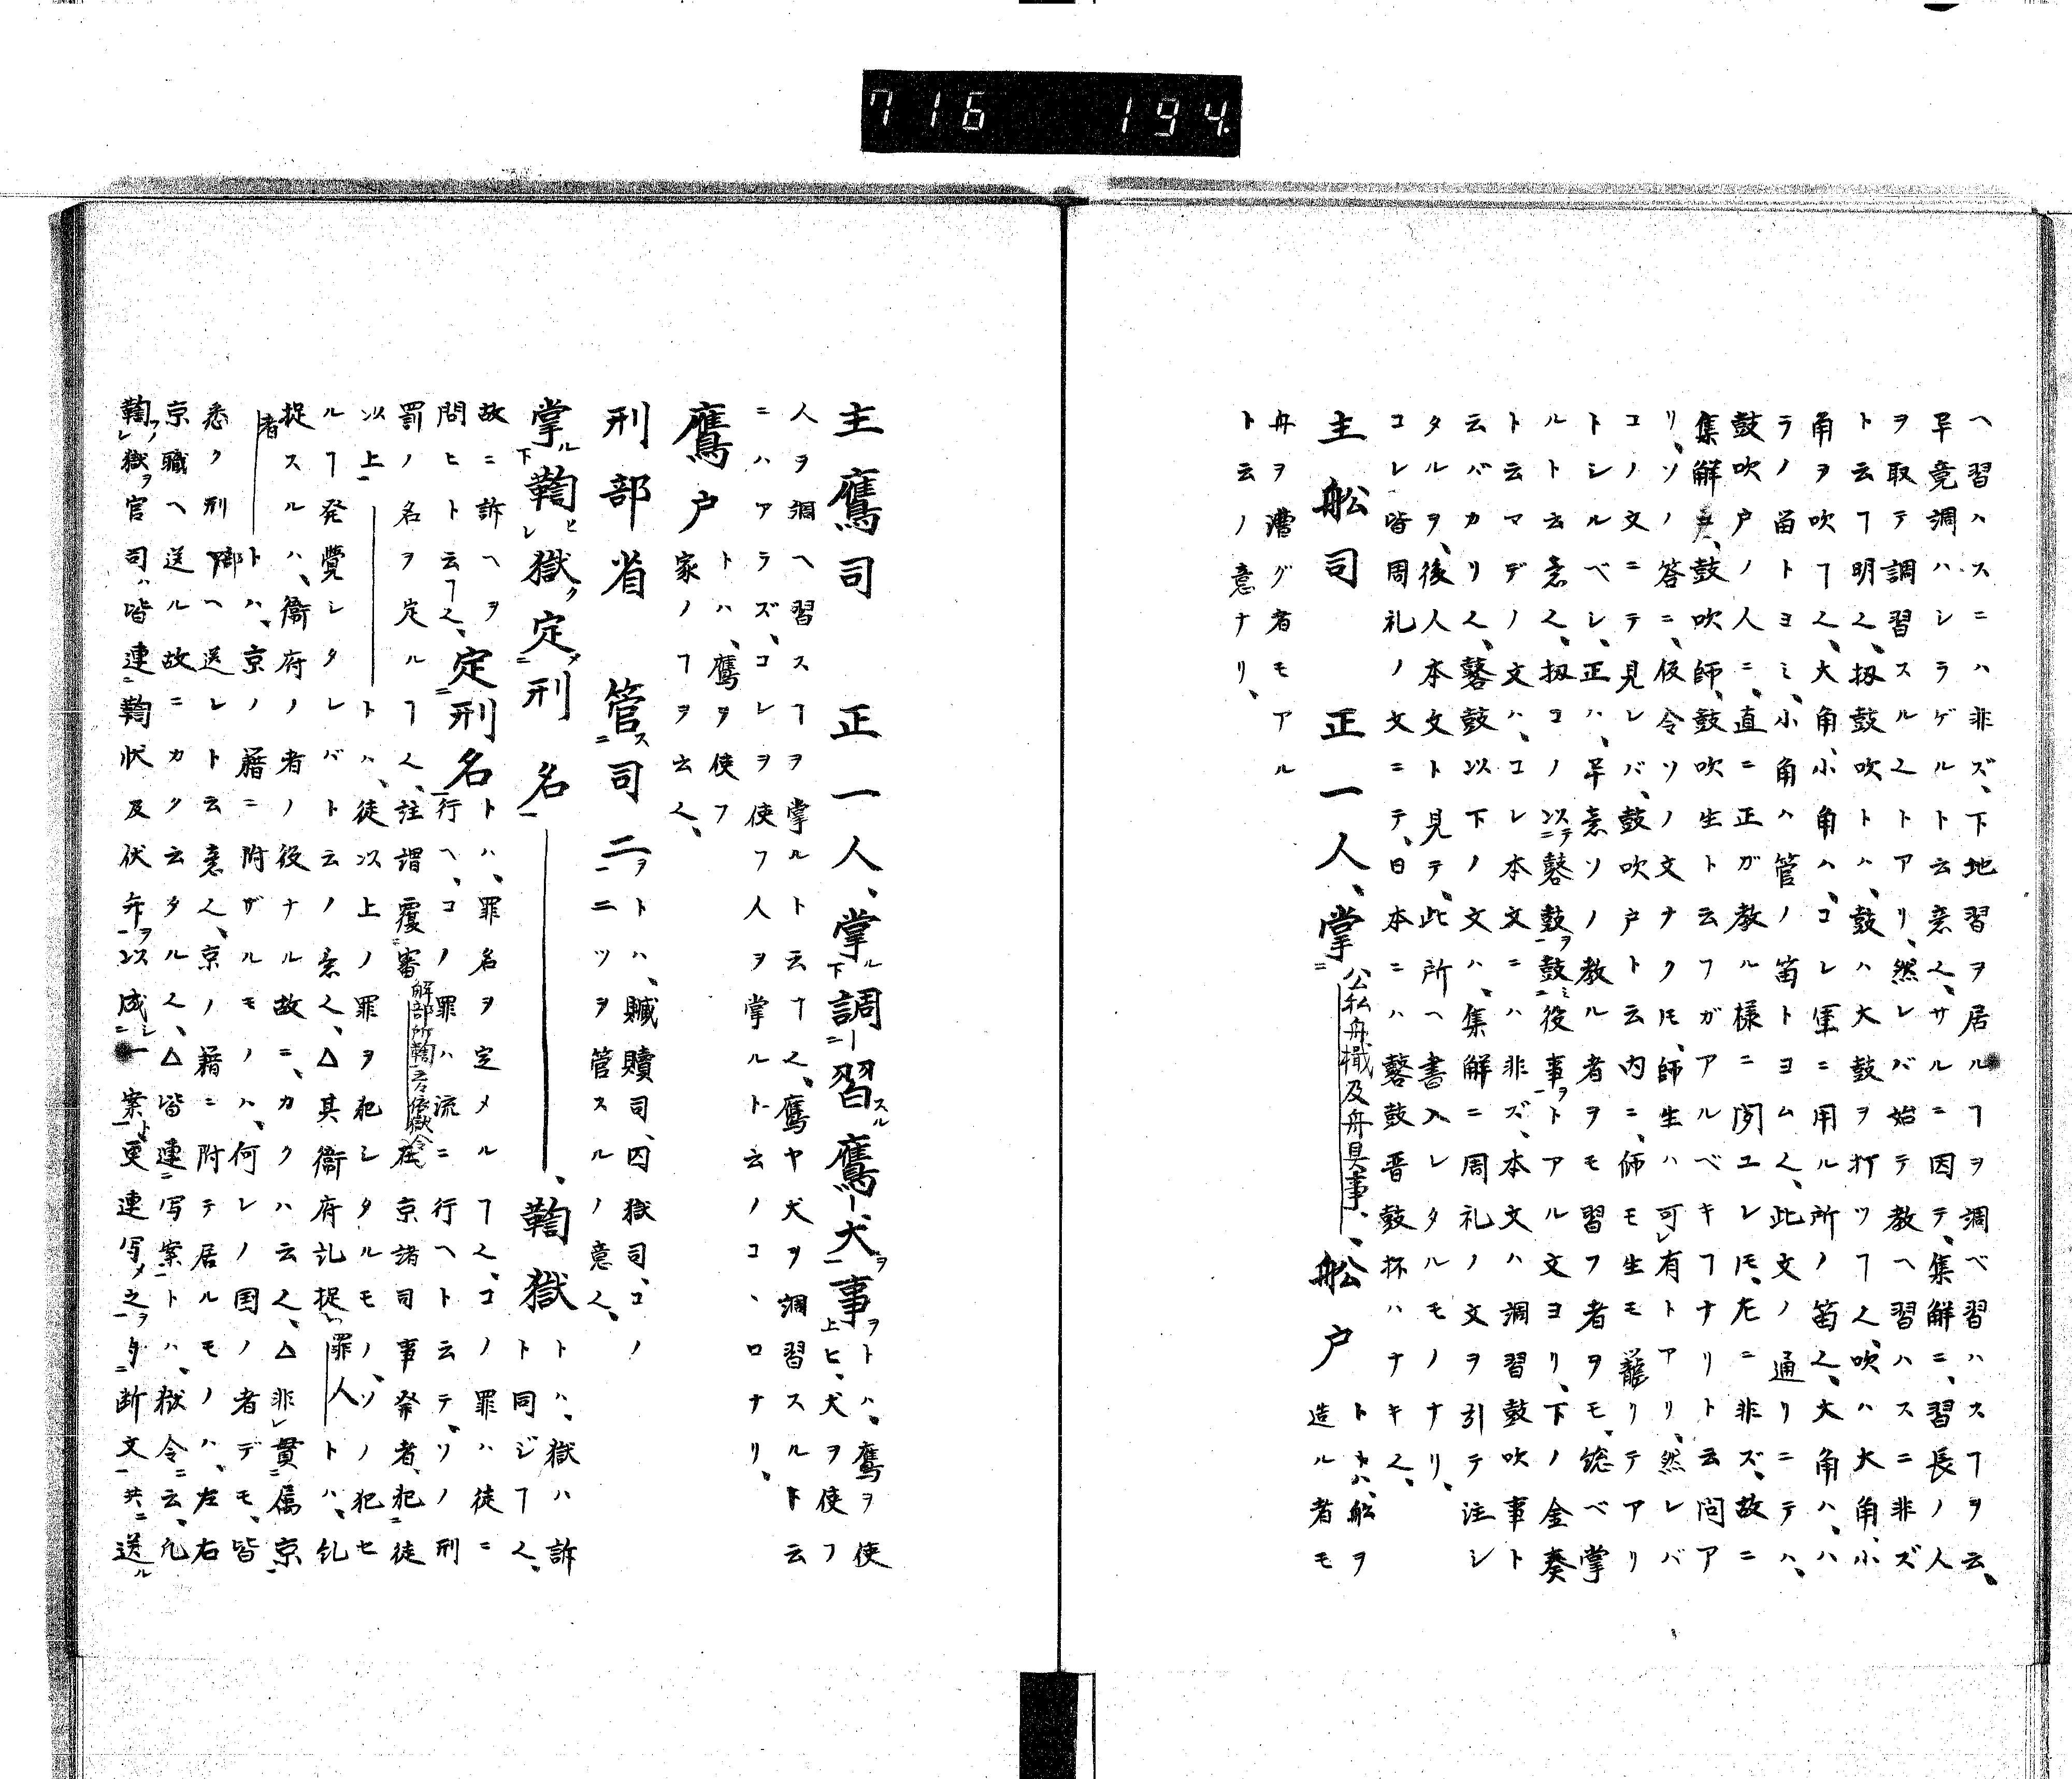 716 194
ヘ習ハスニハ非ズ、下地習ヲ居ルヿヲ調ベ習ハスヿヲ云、
畢竟調ハシラゲルト云意〻、サルニ因テ、集解ニ、習長ノ人
ヲ取テ調習スル〻トアリ、然レバ始テ教ヘ習ハスニ非ズ
ト云ヿ明〻、扨鼓吹トハ、鼓ハ大鼓ヲ打ツヿ〻、吹ハ大角、小
角ヲ吹ヿ〻、大角、小角ハ、コレ軍ニ用ル所ノ笛〻、大角ハ、ハ
ラノ笛トヨミ、小角ハ管ノ笛トヨム〻、此文ノ通リニテハ、
鼓吹戸ノ人ニ、直ニ正ガ教ル様ニ聞ユレ𪜈、左ニ非ズ、故ニ
集解ニ、鼓吹師、鼓吹生ト云フガアルベキヿナリト云問ア
リ、ソノ答ニ、仮令ソノ文ナク𪜈、師生ハ可レ有トアリ、然レバ
コノ文ニテ見レバ、鼓吹戸ト云内ニ、師モ生モ籠リテアリ
トシルベシ、正ハ、畢意ソノ教ル者ヲモ習フ者ヲモ、総ベ掌
ルト云意〻、扨コノ以テ鼛鼓ヲ鼓ミ役事ヲトアル文ヨリ、下ノ金奏
ト云マデノ文ハ、コレ本文ニハ非ズ、本文ハ調習鼓吹事ト
云バカリ〻、鼛鼓以下ノ文ハ、集解ニ周礼ノ文ヲ引テ注シ
タルヲ、後人本文ト見テ、此所ヘ書入レタルモノナリ、
コレ皆周礼ノ文ニテ、日本ニハ鼛鼓晋鼓抔ハナキ〻、
主舩司　正一人、掌ニ公私舟檝及舟具事、舩戸トハ、舩ヲ
造ル者モ
舟ヲ漕グ者モアル
ト云ノ意ナリ、
主鷹司　正一人、掌ル下調ニ習スル鷹一犬ヲ事上ヲトハ、鷹ヲ使ヒ、犬ヲ使フ
人ヲ調ヘ習スヿヲ掌ルト云ヿ〻、鷹ヤ犬ヲ調習スルト云
ニハアラズ、コレヲ使フ人ヲ掌ルト云ノコヽロナリ、
鷹戸トハ、鷹ヲ使フ
家ノヿヲ云〻、
刑部省　管ス二司　二ヲトハ、贓贖司、囚獄司、コノ
二ツヲ管スルノ意〻、
掌ル下鞫ヒレ獄ヲ定メ二刑名一、鞫獄トハ、獄ハ訴
ト同ジヿ〻、
故ニ訴ヘヲ
問ヒト云ヿ〻、定二刑名一トハ、罪名ヲ定メルヿ〻、コノ罪ハ徒ニ
行ヘ、コノ罪ハ流ニ行ヘト云テ、ソノ刑
罰ノ名ヲ定ルヿ〻、註謂覆審解部所鞫之云依獄令在京諸司事発者、犯二徒
以上一トハ、徒以上ノ罪ヲ犯シタルモノ、ソノ犯セ
ルヿ発覺シタレバト云ノ意〻、△其衞府糺捉罪人トハ、糺
捉スルハ、衞府ノ者ノ役ナル故ニ、カクハ云〻、△非レ貫二属京一
者トハ、京ノ籍ニ附ザルモノハ、何レノ国ノ者デモ、皆
悉ク刑部ヘ送レト云意〻、京ノ籍ニ附テ居ルモノハ、左右
京職ヘ送ル故ニカク云タル〻、△皆連二写案一トハ、獄令ニ云、凡
鞫レ獄ヲ官司ハ皆連二鞫状及伏弁ヲ一以成シニ一案ト一、更連写ノ之ヲ、断文一共ニ送ル